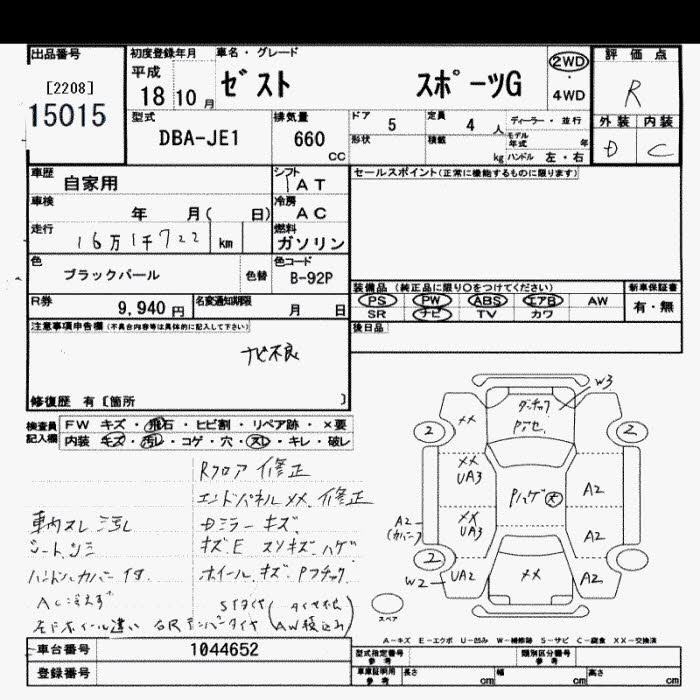 出品番号
[2208]
15015
初度登録年月
平成
18 10 月
車名・グレード
ゼスト スポーツG
2WD
・
4WD
評価点
R
外装 内装
D C
型式
DBA-JE1
排気量
660
CC
ドア
5
定員
4 人
ディーラー・並行
形状
積載
kg
モデル年式 年
ハンドル 左・右
車歴
自家用
シフト
IAT
車検
年 月( 日)
冷房
AC
走行
16万1千722 km
燃料
ガソリン
色
ブラックパール
色替
色コード
B-92P
R券
9,940 円
名変通知期限
月 日
セールスポイント(正常に機能するものに限ります)
装備品 (純正品に限り○をつけてください)
PS PW ABS エアB AW
SR ナビ TV カワ
新車保証書
有・無
後日品
注意事項申告欄(不具合内容等は具体的に記入して下さい)
ナビ不良
修復歴 有〔箇所 〕
検査員記入欄
FW キズ・飛石・ヒビ割・リペア跡・×要
内装 キズ・汚レ・コゲ・穴・スレ・キレ・破レ
Rフロア修正
エンドパネルXX、修正
車内スレ汚レ
シートシミ
ハンドルカバー付
AC冷えず
左ドホイール違い
Dミラーキズ
キズE スリキズ ハゲ
ホイールキズ Pフチック
W3
XX
2
2
XX
UA3
XX
UA3
Pハゲ大
A2
A2
A2
(カバー)
2
W2
UA2
XX
A2
スペア
A-キズ E-エクボ U-凹み W-補修跡 S-サビ C-腐食 XX-交換済
車台番号
1044652
登録番号
型式指定番号
参考
類別区分番号
参考
車庫証明用
参考
長さ cm
幅 cm
高さ cm